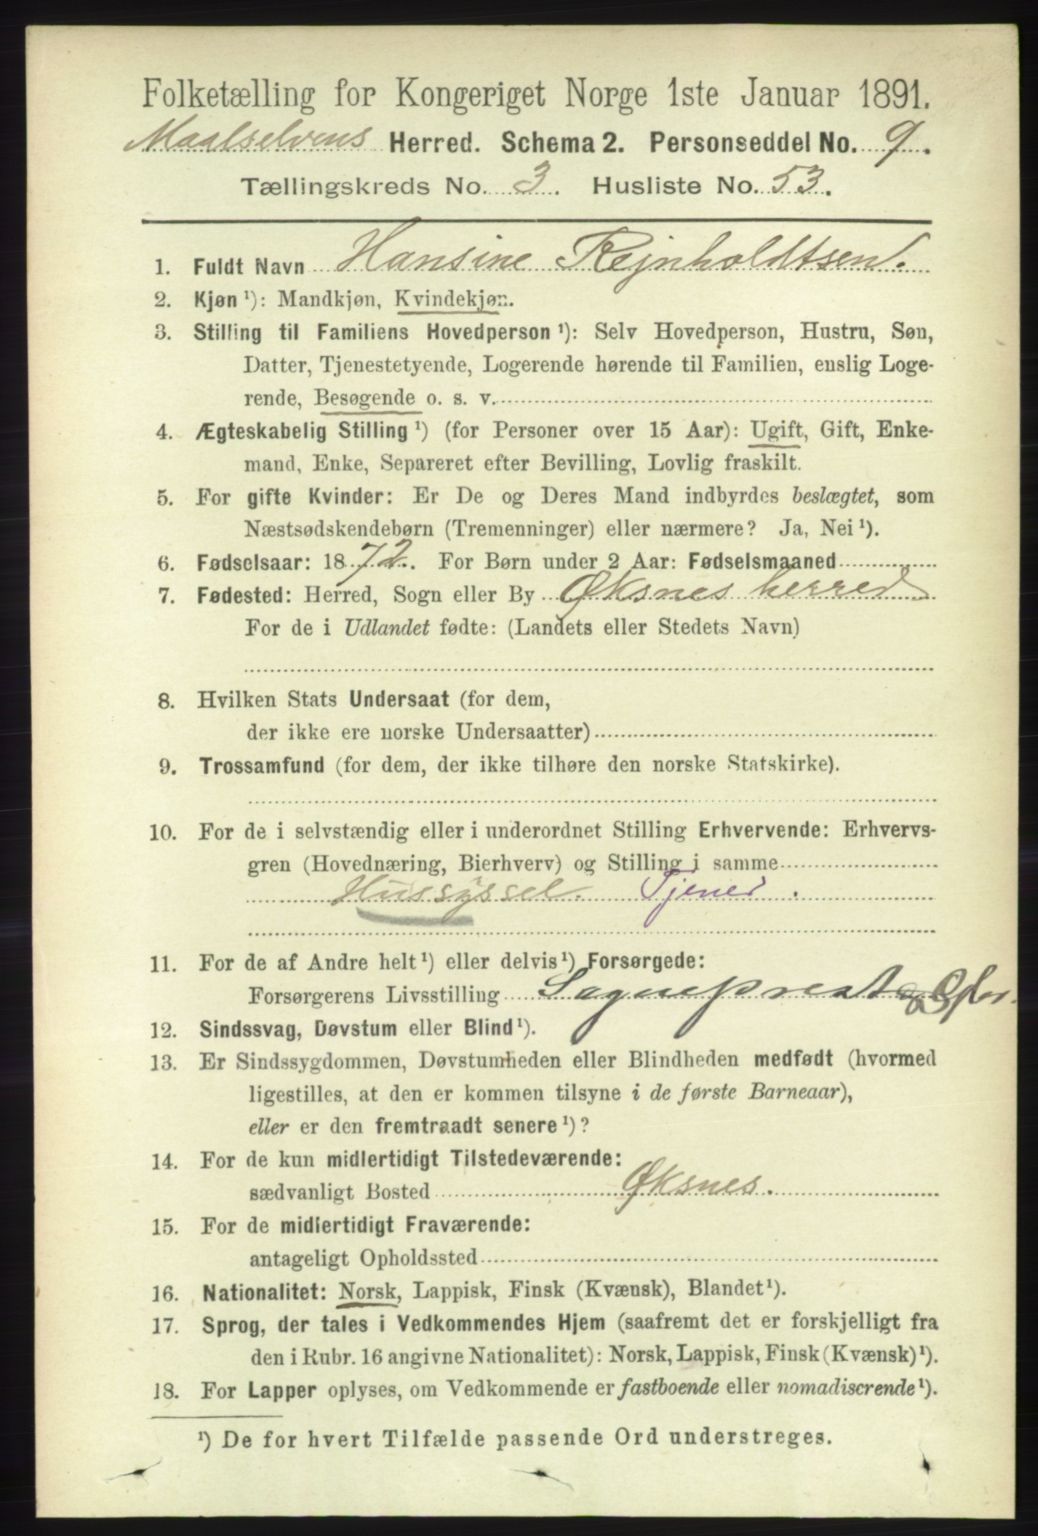 Folketælling for Kongeriget Norge 1ste Januar 1891.
Maalselvens Herred. Schema 2. Personseddel No. 9.
Tællingskreds No. 3. Husliste No. 53.
1. Fuldt Navn Hansine Rejnholdtsen.
2. Kjøn¹): Mandkjøn, Kvindekjøn.
3. Stilling til Familiens Hovedperson¹): Selv Hovedperson, Hustru, Søn,
Datter, Tjenestetyende, Logerende hørende til Familien, enslig Loge-
rende, Besøgende o. s. v.
4. Ægteskabelig Stilling¹) (for Personer over 15 Aar): Ugift, Gift, Enke-
mand, Enke, Separeret efter Bevilling, Lovlig fraskilt.
5. For gifte Kvinder: Er De og Deres Mand indbyrdes beslægtet, som
Næstsødskendebørn (Tremenninger) eller nærmere? Ja, Nei¹).
6. Fødselsaar: 1872. For Børn under 2 Aar: Fødselsmaaned
7. Fødested: Herred, Sogn eller By Øksnes herred
For de i Udlandet fødte: (Landets eller Stedets Navn)
8. Hvilken Stats Undersaat (for dem,
der ikke ere norske Undersaatter)
9. Trossamfund (for dem, der ikke tilhøre den norske Statskirke).
10. For de i selvstændig eller i underordnet Stilling Erhvervende: Erhvervs-
gren (Hovednæring, Bierhverv) og Stilling i samme
Hussyssel. Tjener.
11. For de af Andre helt¹) eller delvis¹) Forsørgede:
Forsørgerens Livsstilling Sogneprest
12. Sindssvag, Døvstum eller Blind¹).
13. Er Sindssygdommen, Døvstumheden eller Blindheden medfødt (hvormed
ligestilles, at den er kommen tilsyne i de første Barneaar),
eller er den fremtraadt senere¹)?
14. For de kun midlertidigt Tilstedeværende:
sædvanligt Bosted Øksnes.
15. For de midlertidigt Fraværende:
antageligt Opholdssted
16. Nationalitet: Norsk, Lappisk, Finsk (Kvænsk), Blandet¹).
17. Sprog, der tales i Vedkommendes Hjem (saafremt det er forskjelligt fra
den i Rubr. 16 angivne Nationalitet): Norsk, Lappisk, Finsk (Kvænsk)¹).
18. For Lapper oplyses, om Vedkommende er fastboende eller nomadiserende¹).
¹) De for hvert Tilfælde passende Ord understreges.